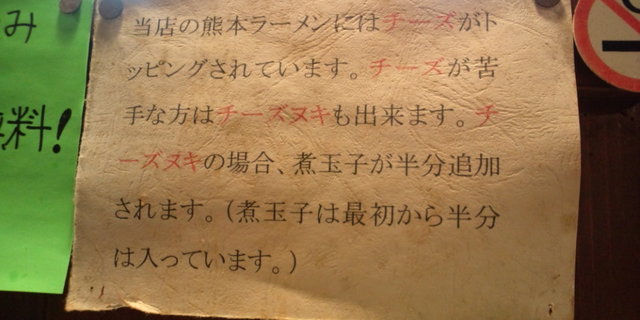 当店の熊本ラーメンにはチーズがト
ッピングされています。チーズが苦
手な方はチーズヌキも出来ます。チ
ーズヌキの場合、煮玉子が半分追加
されます。（煮玉子は最初から半分
は入っています。）
み
料!